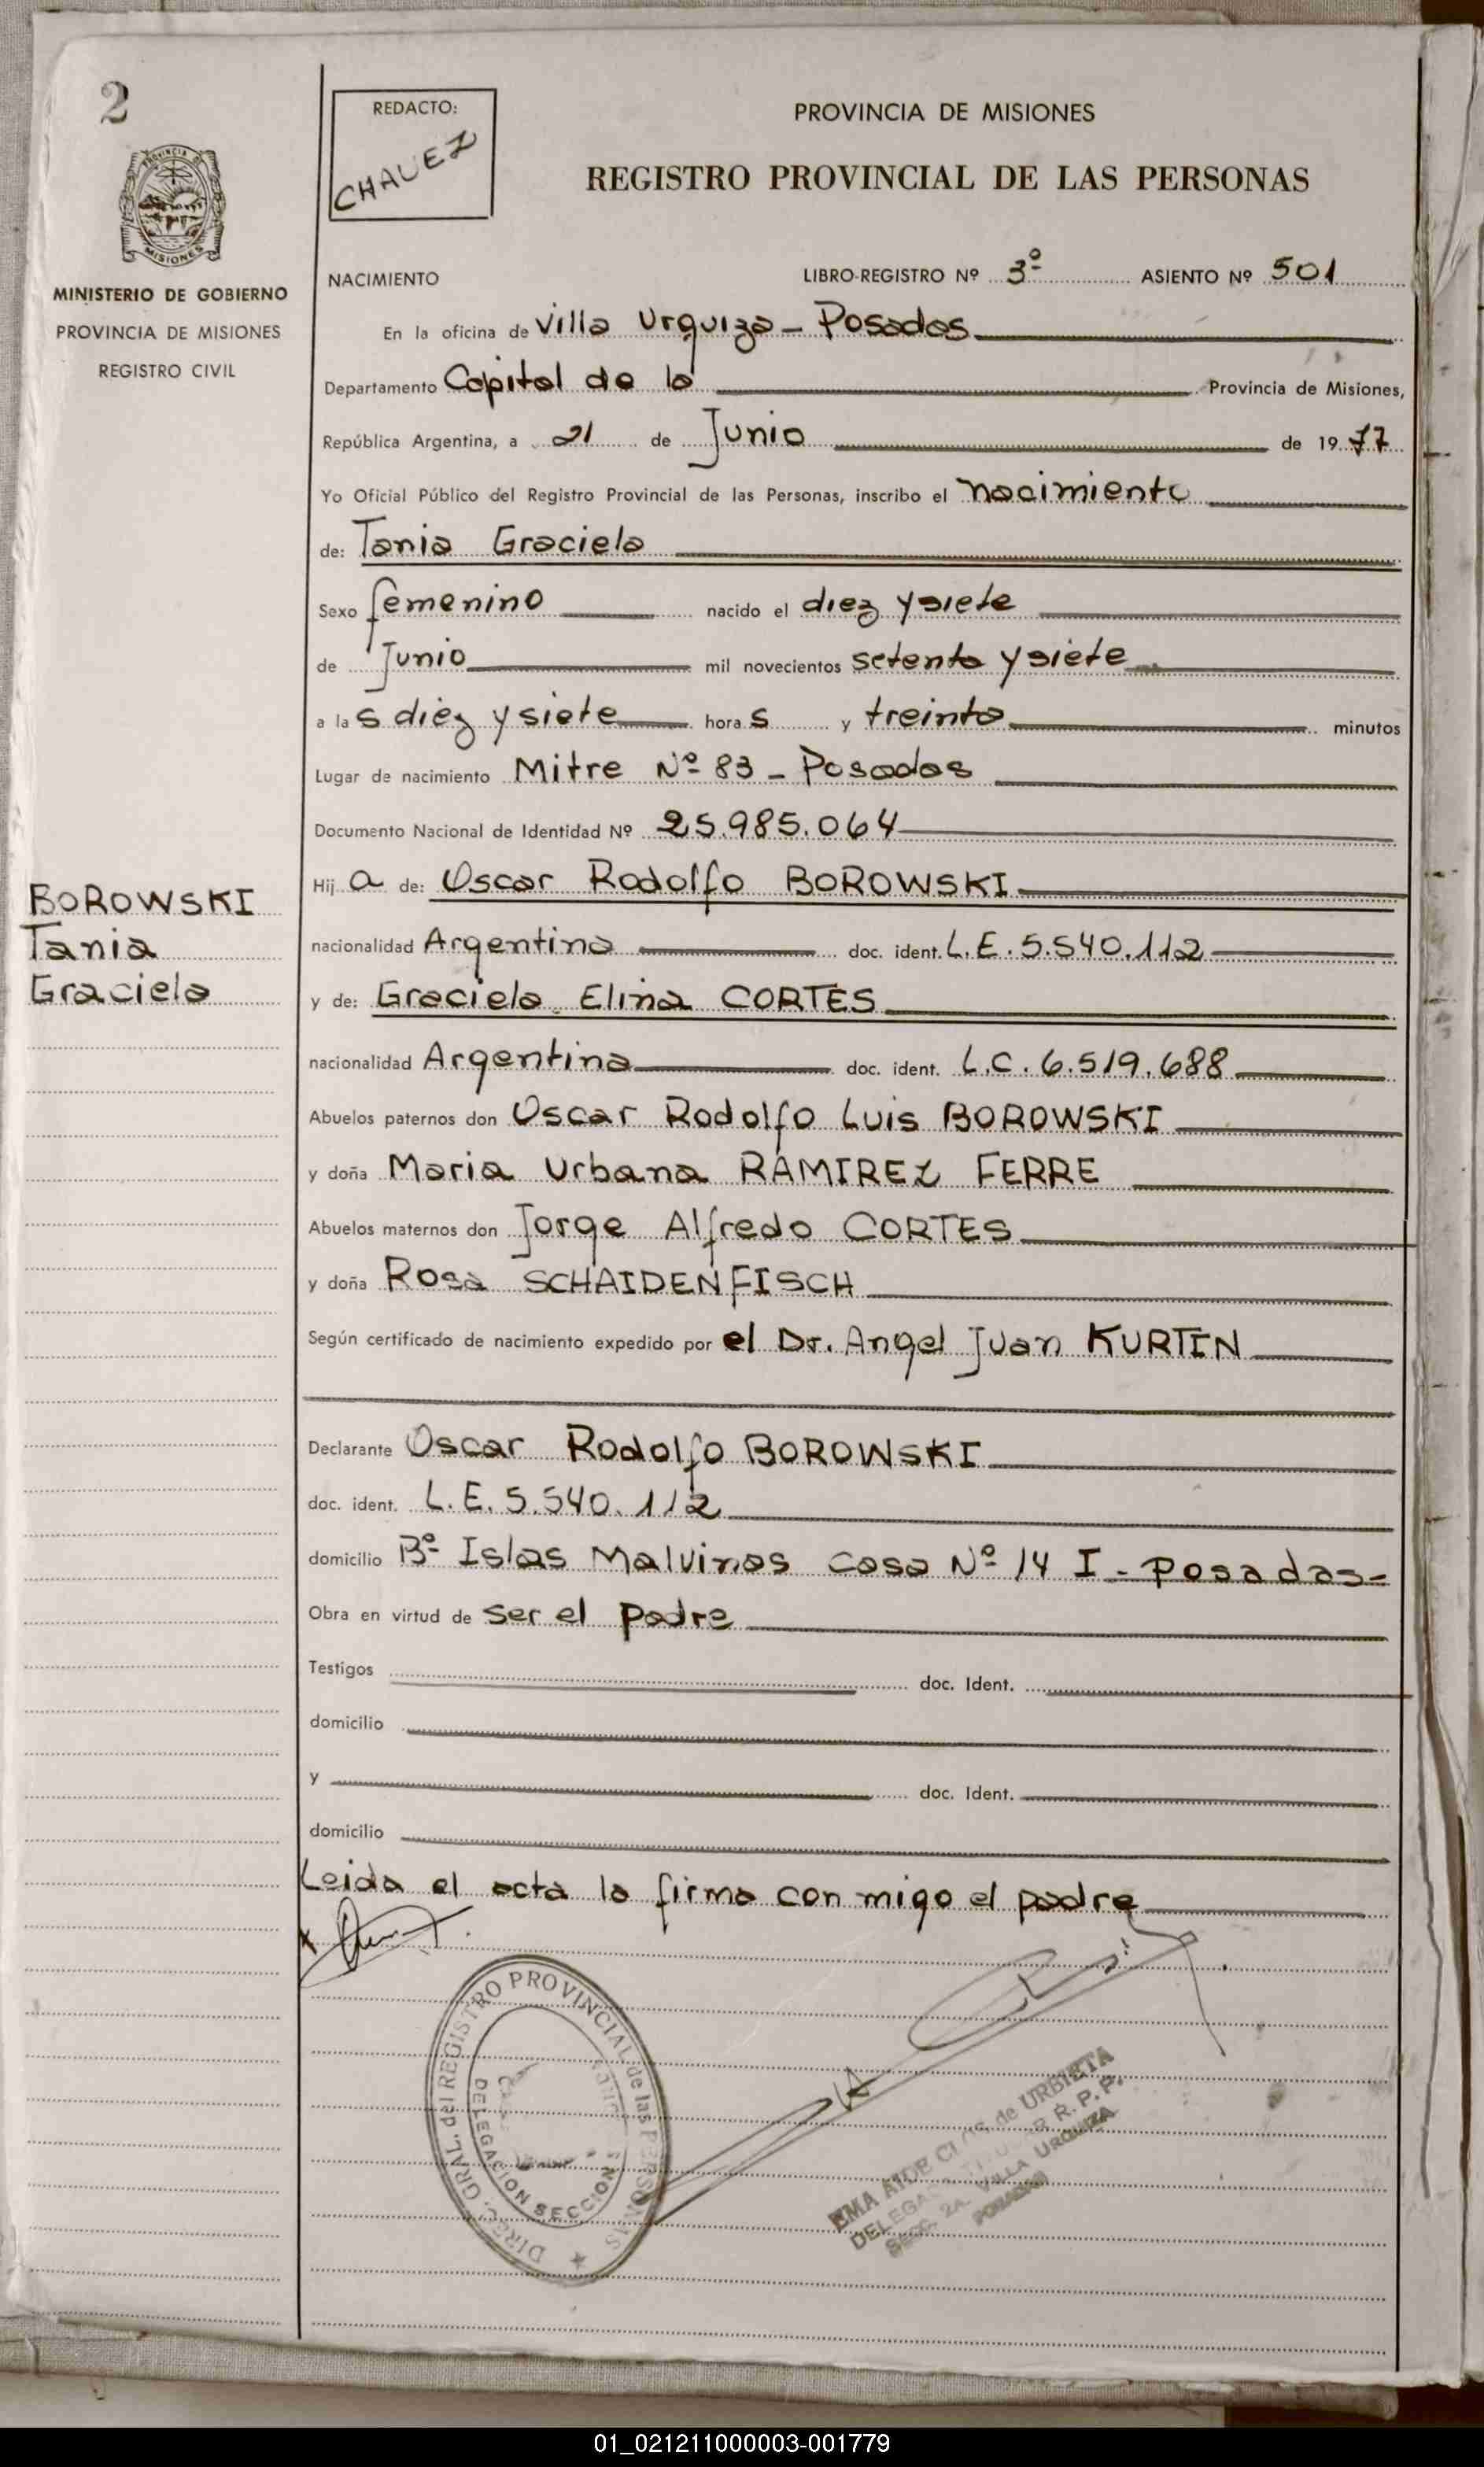 2
PROVINCIA DE
MISIONES
MINISTERIO DE GOBIERNO
PROVINCIA DE MISIONES
REGISTRO CIVIL
REDACTO:
CHAVEZ
PROVINCIA DE MISIONES
REGISTRO PROVINCIAL DE LAS PERSONAS
NACIMIENTO LIBRO-REGISTRO Nº 3º ASIENTO Nº 501
En la oficina de Villa Urquiza - Posadas
Departamento Capital de la Provincia de Misiones,
República Argentina, a 21 de Junio de 1977
Yo Oficial Público del Registro Provincial de las Personas, inscribo el nacimiento
de: Tania Graciela
Sexo femenino nacido el diez y siete
de Junio mil novecientos setenta y siete
a las diez y siete horas y treinta minutos
Lugar de nacimiento Mitre Nº 83 - Posadas
Documento Nacional de Identidad Nº 25.985.064
Hija de: Oscar Rodolfo BOROWSKI
BOROWSKI
Tania
Graciela
nacionalidad Argentina doc. ident. L.E. 5.540.112
y de: Graciela Elina CORTES
nacionalidad Argentina doc. ident. L.C. 6.519.688
Abuelos paternos don Oscar Rodolfo Luis BOROWSKI
y doña Maria Urbana RAMIREZ FERRE
Abuelos maternos don Jorge Alfredo CORTES
y doña Rosa SCHAIDENFISCH
Según certificado de nacimiento expedido por el Dr. Angel Juan KURTIN
Declarante Oscar Rodolfo BOROWSKI
doc. ident. L.E. 5.540.112
domicilio Bº Islas Malvinas casa Nº 14 I - Posadas-
Obra en virtud de ser el padre
Testigos doc. Ident.
domicilio
y doc. Ident.
domicilio
Leida el acta la firma con migo el padre
DIREC. GRAL. del REGISTRO PROVINCIAL de las PERSONAS
DELEGACION SECCION
EMA AIDE de URBIETA
R. P. P.
SECC. 2a. VILLA URQUIZA
POSADAS
01_021211000003-001779